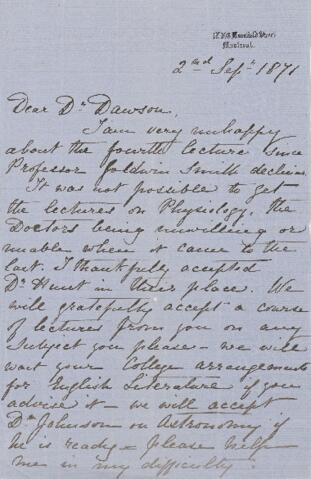 Mansfield Street
Montreal.
2nd Sept. 1871
Dear Dr Dawson,
I am very unhappy
about the fourth lecture since
Professor Goldwin Smith declines.
It was not possible to get
the lectures on Physiology, the
Doctors being unwilling or
unable when it came to the
last. I thankfully accepted
Dr Hunt in their place. We
will gratefully accept a course
of lectures from you on any
subject you please - we will
wait your College arrangements
for English Literature if you
advise it - we will accept
Dr Johnson on Astronomy if
he is ready - please help
me in my difficulty.